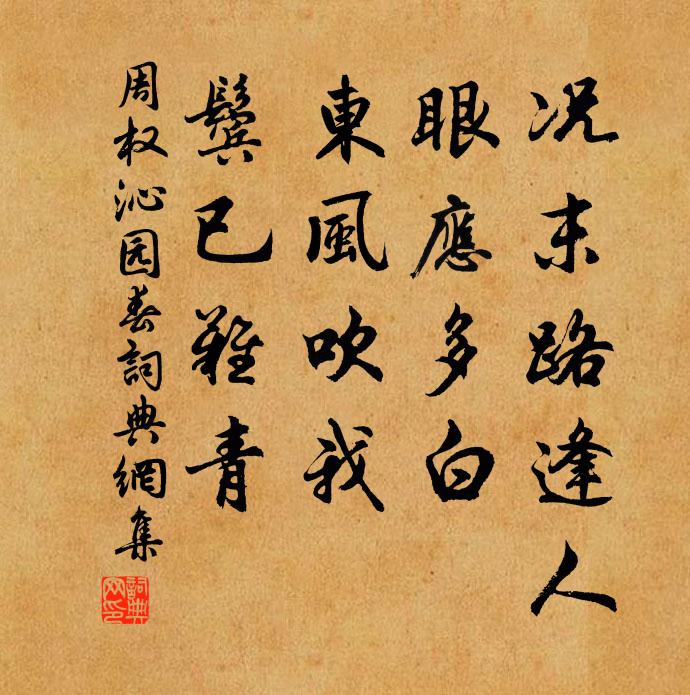 况末路逢人
眼應多白
東風吹我
鬢已難青
周权沁园春詞典網集
詞典网印